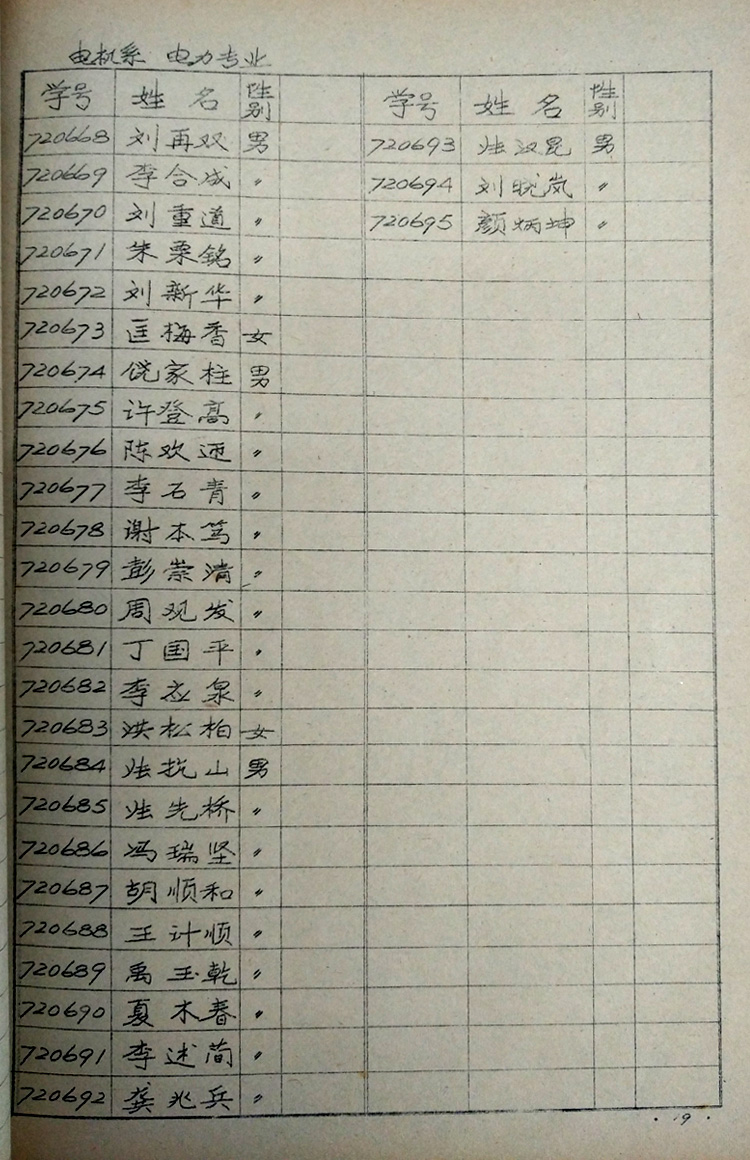 电机系 电力专业
学号 姓名 性别 学号 姓名 性别
720668 刘再双 男 720693 汉昆 男
720669 李合成 〃 720694 刘晓岚 〃
720670 刘重道 〃 720695 颜炳坤 〃
720671 朱栗铭 〃
720672 刘新华 〃
720673 匡梅香 女
720674 饶家柱 男
720675 许登高 〃
720676 陈欢迎 〃
720677 李石青 〃
720678 谢本笃 〃
720679 彭崇清 〃
720680 周观发 〃
720681 丁国平 〃
720682 李应泉 〃
720683 洪松柏 女
720684 抗山 男
720685 先桥 〃
720686 冯瑞坚 〃
720687 胡顺和 〃
720688 王计顺 〃
720689 禹玉乾 〃
720690 夏木春 〃
720691 李述简 〃
720692 龚兆兵 〃
· 19 ·